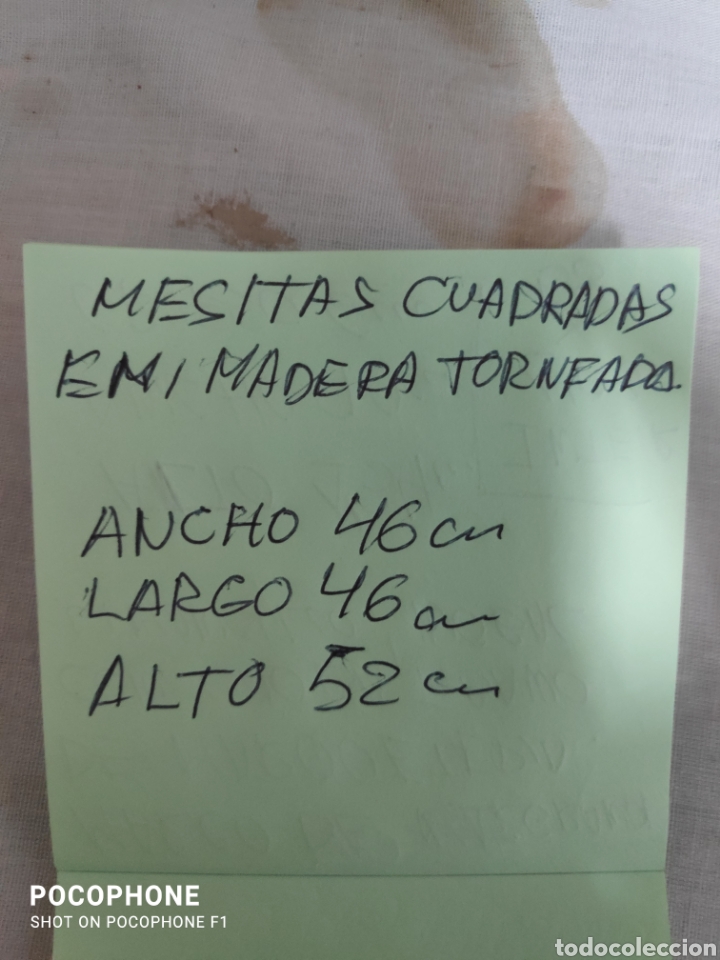 MESITAS CUADRADAS
EN MADERA TORNEADA.
ANCHO 46 cm
LARGO 46 cm
ALTO 52 cm
POCOPHONE
SHOT ON POCOPHONE F1
todocoleccion